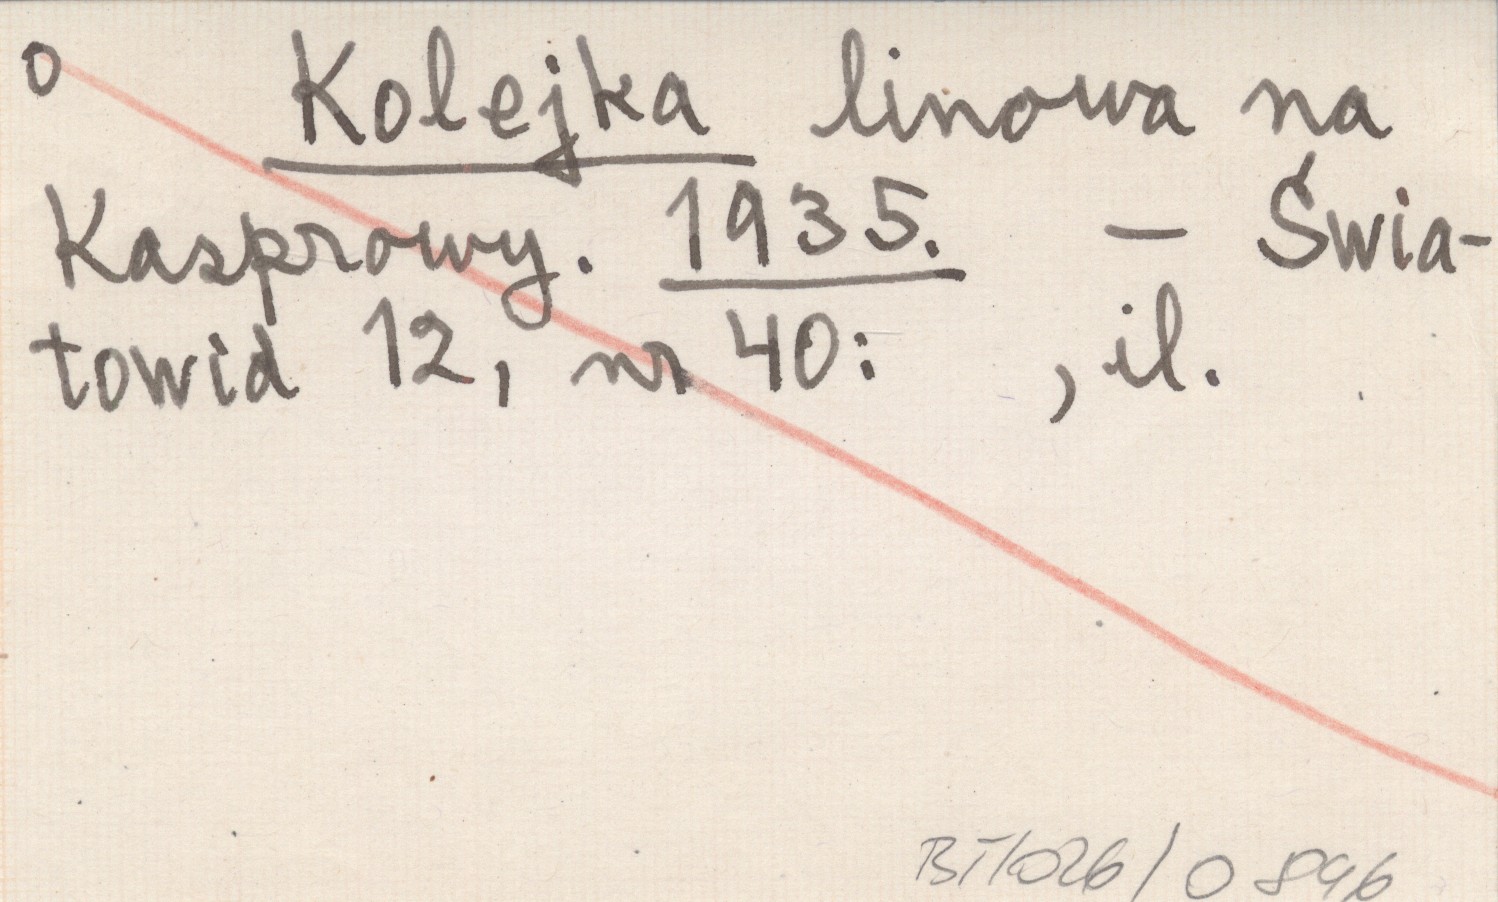 o Kolejka linowa na
Kasprowy. 1935. – Świa-
towid 12, nr 40: , il.
0896